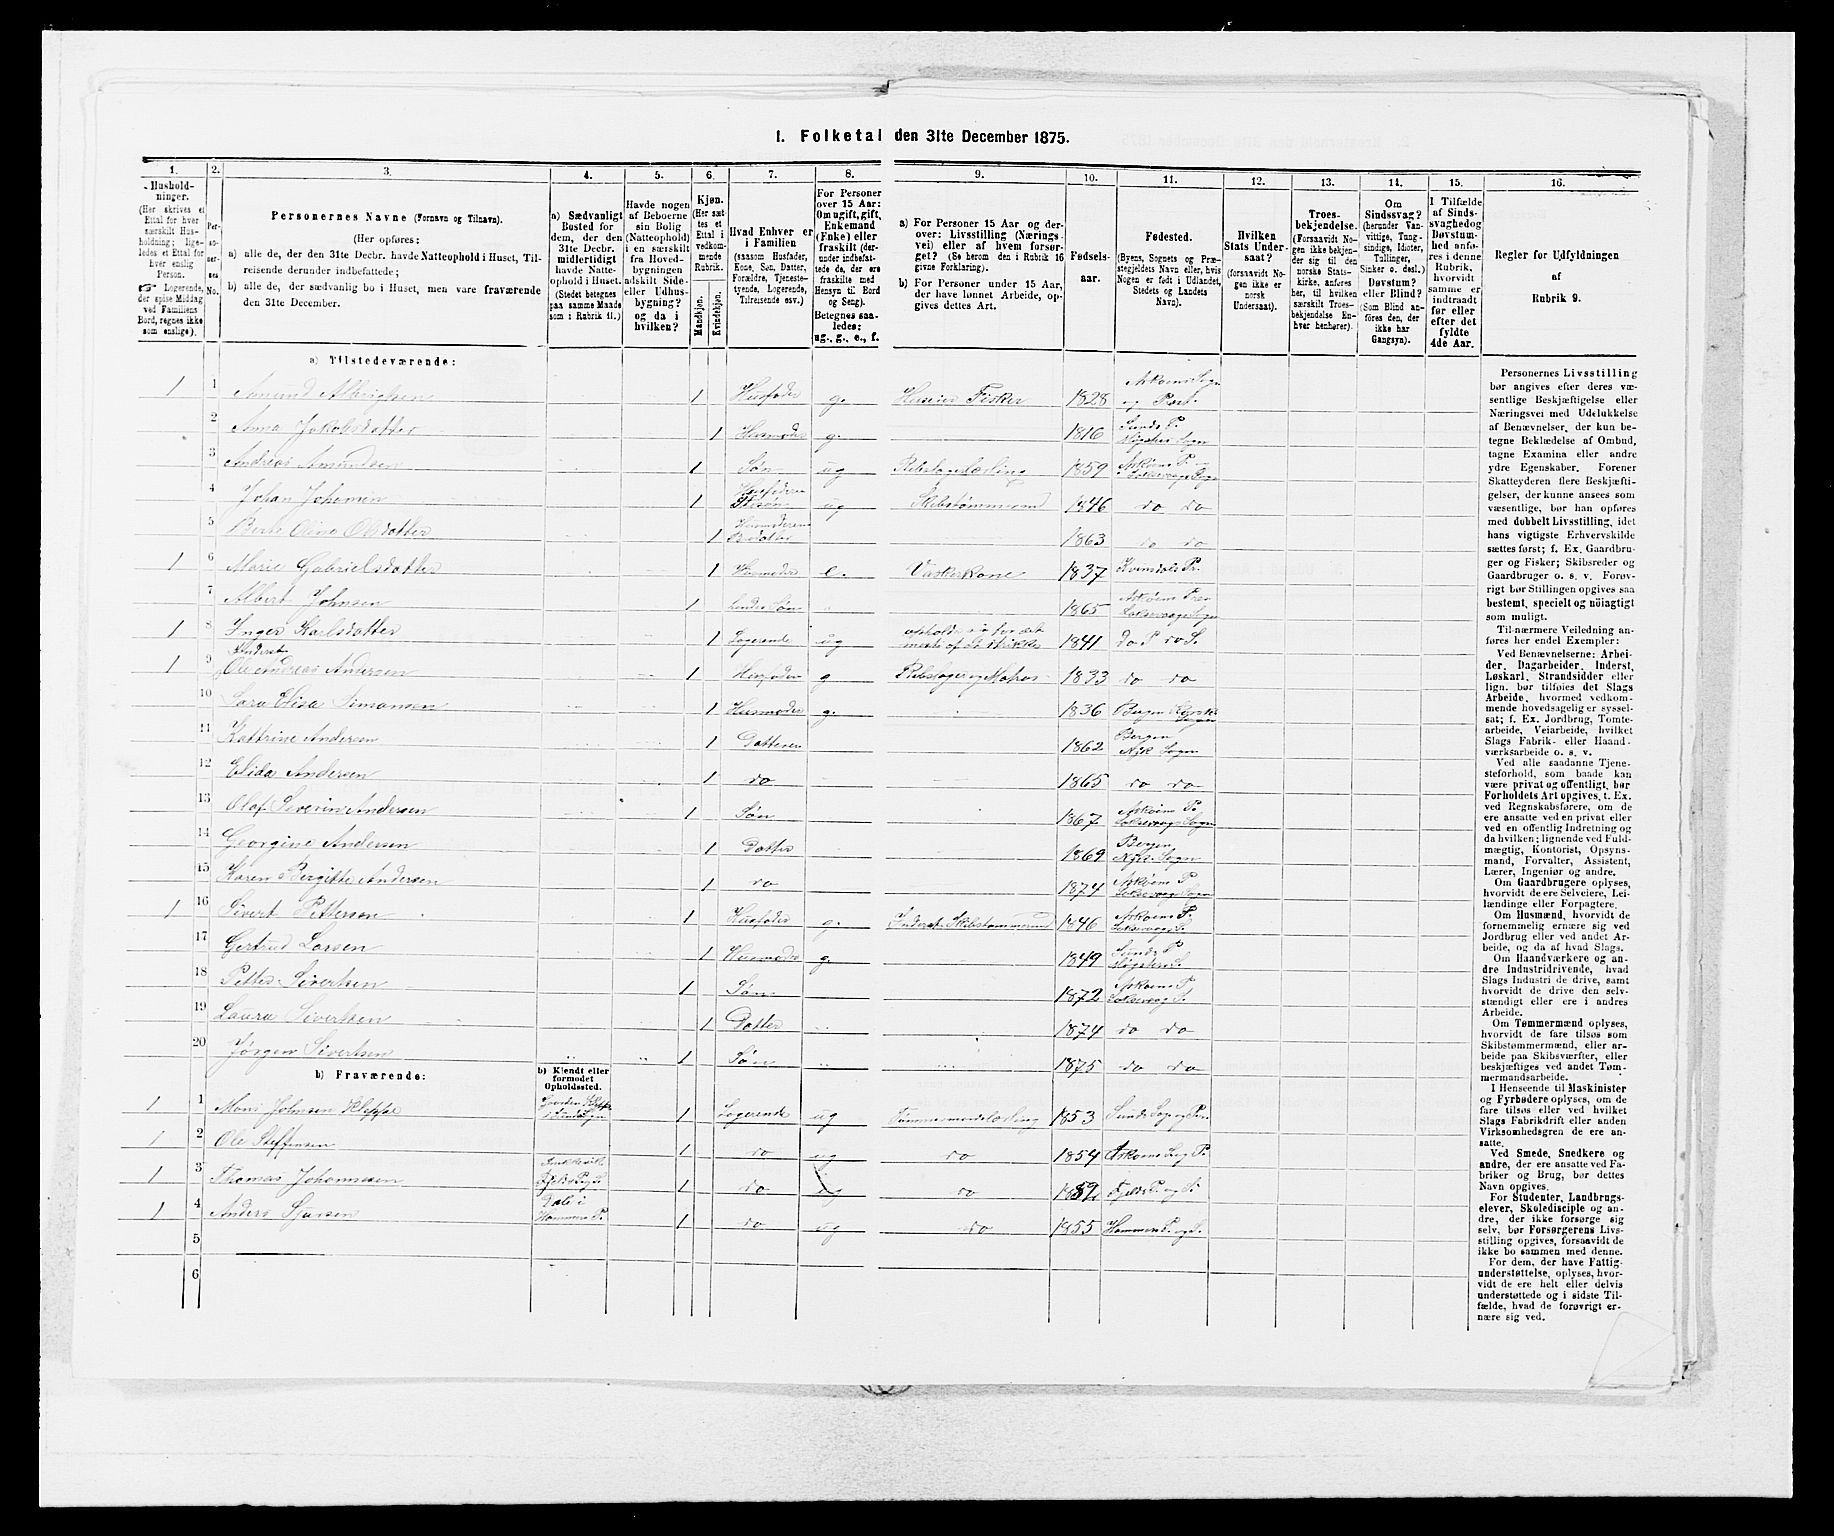 1. Folketal den 31te December 1875.
1. 2. 3. 4. 5. 6. 7. 8. 9. 10. 11. 12. 13. 14. 15. 16.
Hushold-
ninger.
(Her skrives et
Ettal for hver
særskilt Hus-
holdning; lige-
ledes et Ettal for
hver enslig
Person.
Logerende,
der spise Middag
ved Familiens
Bord, regnes ikke
som enslige).
Per-
so-
ner-
nes
No.
Personernes Navne (Fornavn og Tilnavn).
(Her opføres:
a) alle de, der den 31te Decbr. havde Natteophold i Huset, Til-
reisende derunder indbefattede;
b) alle de, der sædvanlig bo i Huset, men vare fraværende
den 31te December.
a) Sædvanligt
Bosted for
dem, der den
31te Decbr.
midlertidigt
havde Natte-
ophold i Huset.
(Stedet betegnes
paa samme Maade
som i Rubrik 11.)
Havde nogen
af Beboerne
sin Bolig
(Natteophold)
i en særskilt
fra Hoved-
bygningen
adskilt Side-
eller Udhus-
bygning?
og da i
hvilken?
Kjøn.
(Her sæt-
tes et
Ettal i
vedkom-
mende
Rubrik.
Mandkjøn.
Kvindekjøn.
Hvad Enhver er
i Familien
(saasom Husfader,
Kone, Søn, Datter,
Forældre, Tjeneste-
tyende, Logerende,
Tilreisende osv.)
For Personer
over 15 Aar:
Om ugift, gift,
Enkemand
(Enke) eller
fraskilt (der-
under indbefat-
tede de, der ere
fraskilte med
Hensyn til Bord
og Seng).
Betegnes saa-
ledes:
ug., g., e., f.
a) For Personer 15 Aar og der-
over: Livsstilling (Nærings-
vei) eller af hvem forsør-
get? (Se herom den i Rubrik 16
givne Forklaring).
b) For Personer under 15 Aar,
der have lønnet Arbeide, op-
gives dettes Art.
Fødsels-
aar.
Fødested.
(Byens, Sognets og Præ-
stegjeldets Navn eller, hvis
Nogen er født i Udlandet,
Stedets og Landets
Navn).
Hvilken
Stats Under-
saat?
(forsaavidt No-
gen ikke er
norsk
Undersaat).
Troes-
bekjendelse.
(Forsaavidt No-
gen ikke bekjen-
der sig til den
norske Stats-
kirke, anføres
her, til hvilken
særskilt Troes-
bekjendelse En-
hver henhører).
Om
Sindssvag?
(herunder Van-
vittige, Tung-
sindige, Idioter,
Tullinger,
Sinker o. desl.)
Døvstum?
eller Blind?
(Som Blind an-
føres den, der
ikke har
Gangsyn).
I Tilfælde
af Sinds-
svaghed og
Døvstum-
hed anfø-
res i denne
Rubrik,
hvorvidt
samme er
indtraadt
før eller
efter det
fyldte
4de Aar.
Regler for Udfyldningen
af
Rubrik 9.
a) Tilstedeværende:
1 1 Amund Albrigtsen 1 Husfader g. Huseier Fisker 1828 Askøens Sogn og Præst.
2 Anna Jakobsdatter 1 Husmoder g. 1816 Sunds P. Sogn
3 Andreas Amundsen 1 Søn ug Rebslagerlærling 1859 Askøens P. og Sogn
4 Johan 1 ug 1846 do do
5 Berte Oline Olsdatter 1 1863 do do
1 6 Marie Gabrielsdatter 1 Husmoder e. Vaskerkone 1837 Kvindals Pr.
7 Albert Johnsen 1 Søn 1865 Askøens Laksevaags Sogn
1 8 Inger Karlsdatter 1 Logerende ug 1841 do P do S.
Inderst
1 9 Ole Andreas Andersen 1 Husfader g Rebslager og Matros 1833 do do
10 Sara Elisa Simonsen 1 Husmoder g. 1836 Bergen Sogn
11 Kattrine Andersen 1 Datteren 1862 Bergen Nyk. Sogn
12 Elida Andersen 1 do 1865 do do
13 Olaf Severin Andersen 1 Søn 1867 Askøens P. Laksevaags Sogn
14 Georgine Andersen 1 Datter 1869 Bergen Nyk. Sogn
15 Karen Bergitte Andersen 1 do 1874 Askøens P. Laksevaags Sogn
1 16 Sivert Pettersen 1 Husfader g. Inderst Skibstømmermd 1846 Askøens P. Laksevaags S.
17 Gertrud Larsen 1 Husmoder g. 1849 Sunds P
18 Petter Sivertsen 1 Søn 1872 Askøens P. Laksevaag S.
19 Laura Sivertsen 1 Datter 1874 do do
20 Jørgen Sivertsen 1 Søn 1875 do do
b) Fraværende:
b) Kjendt eller
formodet
Opholdssted.
1 1 Mons Johnsen Kleppe Gaarden Kleppe i Sunds Sogn 1 Logerende ug Tømmermandslærling 1853 Sunds Sogn og Præ.
1 2 Ole Steffensen 1 do ug do 1854 Askøens Sog P.
1 3 Thomas Johannesen 1 do ug do Fjelds P. og S.
1 4 Anders Sjursen Dale i Hammers P. 1 do ug do 1855 Hammers P. og S.
5
6
Personernes Livsstilling
bør angives efter deres væ-
sentlige Beskjæftigelse eller
Næringsvei med Udelukkelse
af Benævnelser, der kun be-
tegne Beklædelse af Ombud,
tagne Examina eller andre
ydre Egenskaber. Forener
Skatteyderen flere Beskjæfti-
gelser, der kunne ansees som
væsentlige, bør han opføres
med dobbelt Livsstilling, idet
hans vigtigste Erhvervskilde
sættes først; f. Ex. Gaardbru-
ger og Fisker; Skibsreder og
Gaardbruger o. s. v. Forøv-
rigt bør Stillingen opgives saa
bestemt, specielt og nøiagtigt
som muligt.
Til nærmere Veiledning an-
føres her endel Exempler:
Ved Benævnelserne: Arbei-
der, Dagarbeider, Inderst,
Løskarl, Strandsidder eller
lign. bør tilføies det Slags
Arbeide, hvormed vedkom-
mende hovedsagelig er syssel-
sat; f. Ex. Jordbrug, Tomte-
arbeide, Veiarbeide, hvilket
Slags Fabrik- eller Haand-
værksarbeide o. s. v.
Ved alle saadanne Tjene-
steforhold, som baade kan
være privat og offentligt, bør
Forholdets Art opgives, t. Ex.
ved Regnskabsførere, om de
ere ansatte ved en privat eller
ved en offentlig Indretning og
da hvilken; lignende ved Fuld-
mægtig, Kontorist, Opsyns-
mand, Forvalter, Assistent,
Lærer, Ingeniør og andre.
Om Gaardbrugere oplyses,
hvorvidt de ere Selveiere, Lei-
lændinge eller Forpagtere.
Om Husmænd, hvorvidt de
fornemmelig ernære sig ved
Jordbrug eller ved andet Ar-
beide, og da af hvad Slags.
Om Haandværkere og an-
dre Industridrivende, hvad
Slags Industri de drive, samt
hvorvidt de drive den selv-
stændigt eller ere i andres
Arbeide.
Om Tømmermænd oplyses,
hvorvidt de fare tilsøs som
Skibstømmermænd, eller ar-
beide paa Skibsværfter, eller
beskjæftiges ved andet Tøm-
mermandsarbeide.
I Henseende til Maskinister
og Fyrbødere oplyses, om de
fare tilsøs eller ved hvilket
Slags Fabrikdrift eller anden
Virksomhedsgren de ere an-
satte.
Ved Smede, Snedkere og
andre, der ere ansatte ved Fa-
briker og Brug, bør dettes
Navn opgives.
For Studenter, Landbrugs-
elever, Skoledisciple og an-
dre, der ikke forsørge sig
selv, bør Forsørgerens Livs-
stilling opgives, forsaavidt de
ikke bo sammen med denne.
For dem, der have Fattig-
understøttelse, oplyses, hvor-
vidt de ere helt eller delvis
understøttede og i sidste Til-
fælde, hvad de forøvrigt er-
nære sig ved.